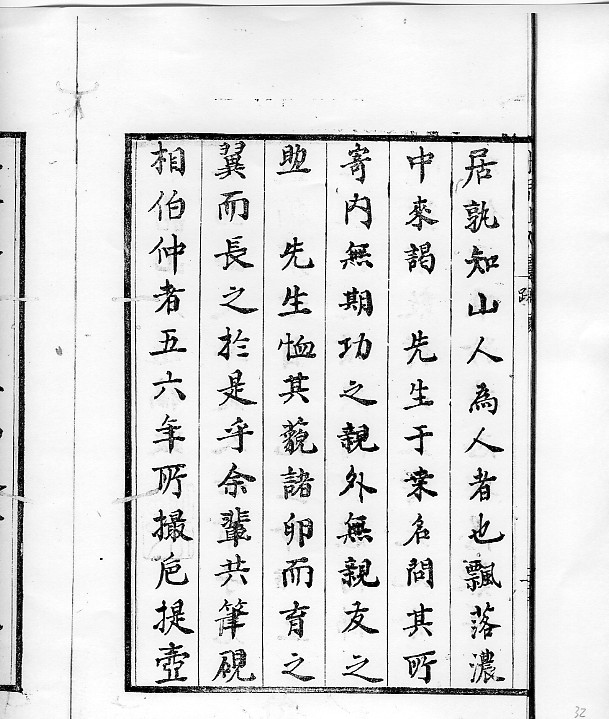 居孰知山人為人者也飄落濃
中來謁　先生于桒名問其所
寄內無期功之親外無親友之
助　先生恤其藐諸卵而育之
翼而長之於是乎余輩共筆硯
相伯仲者五六年所撮卮提壺
32